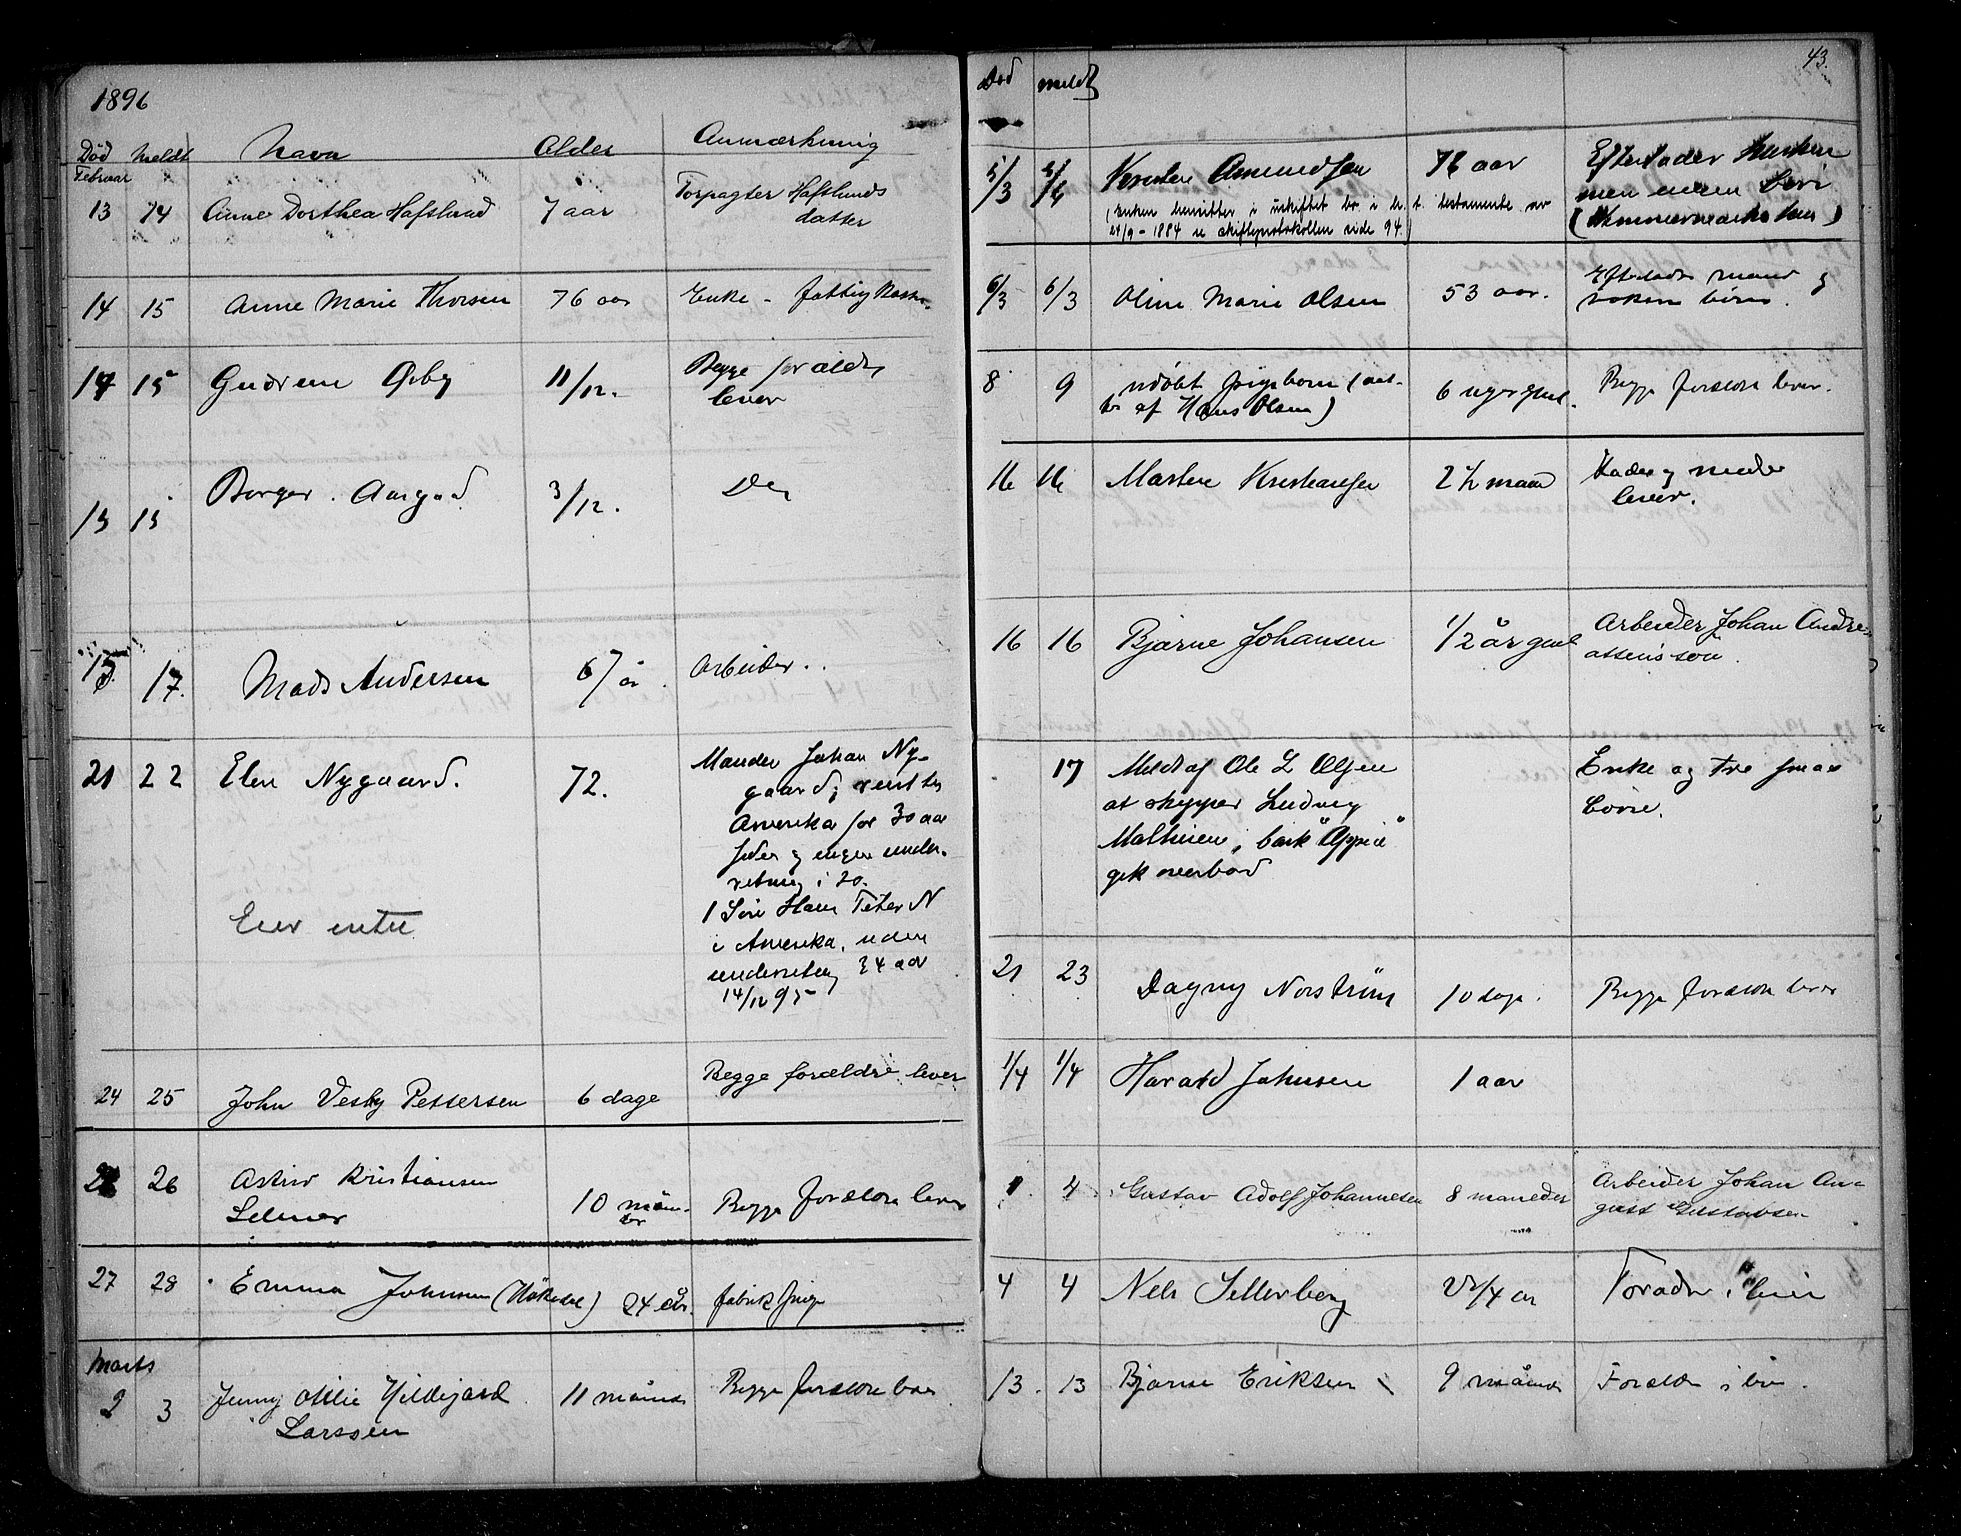 1896
Død Meldt Navn Alder Anmærkning
Februar
13 14 Anne Dorthea Hafslund 7 aar Forpagter Hafslunds
datter
14 15 Anne Marie Thorsen 76 aar Enke - fattigkasse
14 15 Gudrun Ørby 11/12. Begge forældre
lever
15 15 Borger Aargad 3/12. Do
15. 17. Mads Andersen 67 år Arbeider.
21 22 Elen Nygaard. 72. Manden Johan Ny-
gaard, reist til
Amerika for 30 aar
siden og ingen under-
retning i 20.
1 Søn Hans Peter N
i Amerika, uden
underretning 34 aar
14/12 95
Eier intet
24 25 John Vesby Pettersen 6 dage Begge forældre lever
26 26 Astrid Kristiansen
Selmer 10 måne-
der Begge forældre lever
27 28 Emma Johnsen (Håkedal) 24 år. fabrikspige
Marts
2 3 Jenny Otilie Hildegard
Larssen 11 måned Begge forældre lever
43.
Død meldt
5/3 5/3 Amundsen 76 aar Efterlader
men ingen børn
(Enken hensitter i uskiftet bo i h.t. testamente av
24/9 - 1884 se skifteprotokollen side 94.)
6/3 6/3 Oline Marie Olsen 53 aar. Efterlader mand og
voksne børn.
8 9 udøbt pigebarn (dat-
ter af Hans Olsen) 6 uger gml. Begge forældre lever.
16 16 Martin Kristiansen 2½ maand Fader og moder
lever.
16 16 Bjarne Johansen 1/2 år gml Arbeider Johan Andre-
assens søn.
17 Meldt af Ole L Olsen
at skipper Ludvig
Mathisen, bark "Appia"
gik overbord Enke og tre smaa
børn.
21 23 Dagny Norström 10 dage. Begge forældre lever
1/4 1/4 Harald Johnsen 1 aar
1. 4 Gustav Adolf Johannesen 8 maneder Arbeider Johan Au-
gust Gustavsen
4 4 Nels Sellerberg 2 1/4 år Forældre i live
13. 13 Bjarne Eriksen 9 måned Forældre i live.